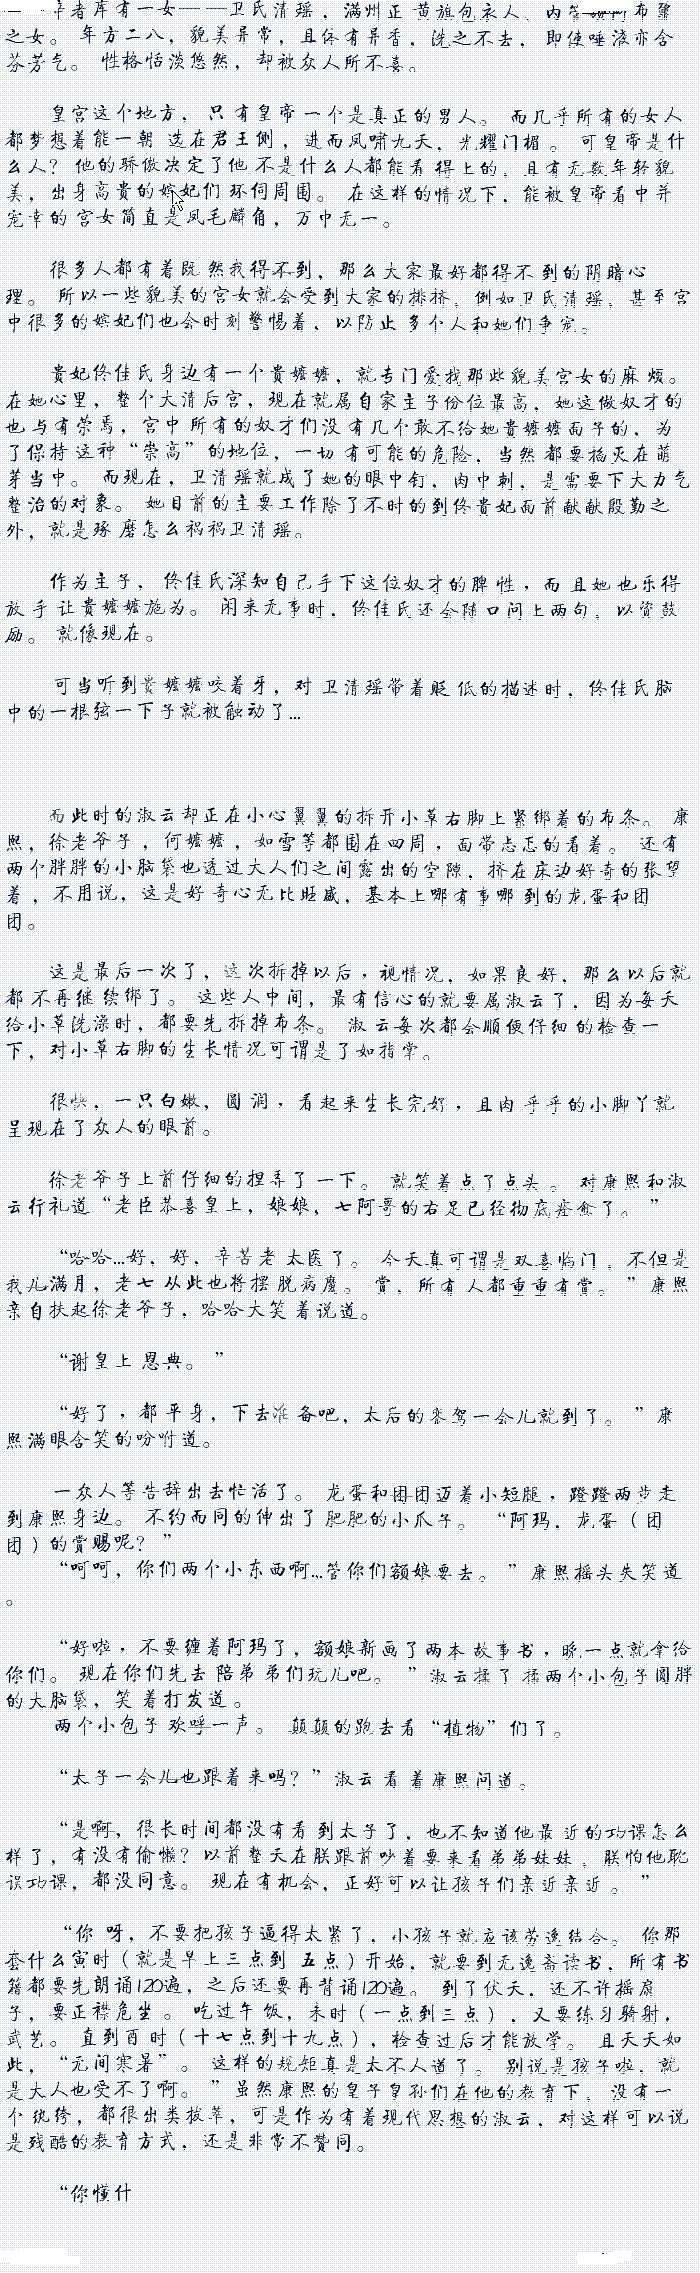 辛者库有一女———卫氏清瑶，满州正黄旗包衣人，内管领阿布鼐
之女。 年方二八，貌美异常，且体有异香，洗之不去，即使唾液亦含
芬芳气。 性格恬淡悠然，却被众人所不喜。
皇宫这个地方，只有皇帝一个是真正的男人。 而几乎所有的女人
都梦想着能一朝选在君王侧，进而凤啸九天，光耀门楣。 可皇帝是什
么人？他的骄傲决定了他不是什么人都能看得上的，且有无数年轻貌
美，出身高贵的嫔妃们环伺周围。 在这样的情况下，能被皇帝看中并
宠幸的宫女简直是凤毛麟角，万中无一。
很多人都有着既然我得不到，那么大家最好都得不到的阴暗心
理。 所以一些貌美的宫女就会受到大家的排挤，例如卫氏清瑶，甚至宫
中很多的嫔妃们也会时刻警惕着，以防止多个人和她们争宠。
贵妃佟佳氏身边有一个贵嬷嬷，就专门爱找那些貌美宫女的麻烦。
在她心里，整个大清后宫，现在就属自家主子份位最高，她这做奴才的
也与有荣焉，宫中所有的奴才们没有几个敢不给她贵嬷嬷面子的，为
了保持这种“崇高”的地位，一切有可能的危险，当然都要掐灭在萌
芽当中。 而现在，卫清瑶就成了她的眼中钉，肉中刺，是需要下大力气
整治的对象。 她目前的主要工作除了不时的到佟贵妃面前献献殷勤之
外，就是琢磨怎么祸祸卫清瑶。
作为主子，佟佳氏深知自己手下这位奴才的脾性，而且她也乐得
放手让贵嬷嬷施为。 闲来无事时，佟佳氏还会随口问上两句，以资鼓
励。 就像现在。
可当听到贵嬷嬷咬着牙，对卫清瑶带着贬低的描述时，佟佳氏脑
中的一根弦一下子就被触动了…
而此时的淑云却正在小心翼翼的拆开小草右脚上紧绑着的布条。 康
熙，徐老爷子，何嬷嬷，如雪等都围在四周，面带忐忑的看着。 还有
两个胖胖的小脑袋也透过大人们之间露出的空隙，挤在床边好奇的张望
着，不用说，这是好奇心无比旺盛，基本上哪有事哪到的龙蛋和团
团。
这是最后一次了，这次拆掉以后，视情况，如果良好，那么以后就
都不再继续绑了。 这些人中间，最有信心的就要属淑云了，因为每天
给小草洗澡时，都要先拆掉布条。 淑云每次都会顺便仔细的检查一
下，对小草右脚的生长情况可谓是了如指掌。
很快，一只白嫩，圆润，看起来生长完好，且肉乎乎的小脚丫就
呈现在了众人的眼前。
徐老爷子上前仔细的捏弄了一下。 就笑着点了点头。 对康熙和淑
云行礼道“老臣恭喜皇上，娘娘，七阿哥的右足已经彻底痊愈了。”
“哈哈…好，好，辛苦老太医了。 今天真可谓是双喜临门，不但是
我儿满月，老七从此也将摆脱病魔。 赏，所有人都重重有赏。”康熙
亲自扶起徐老爷子，哈哈大笑着说道。
“谢皇上恩典。”
“好了，都平身，下去准备吧，太后的銮驾一会儿就到了。”康
熙满眼含笑的吩咐道。
一众人等告辞出去忙活了。 龙蛋和团团迈着小短腿，蹬蹬两步走
到康熙身边。 不约而同的伸出了肥肥的小爪子。 “阿玛，龙蛋（团
团）的赏赐呢？”
“呵呵，你们两个小东西啊…管你们额娘要去。”康熙摇头失笑道
。
“好啦，不要缠着阿玛了，额娘新画了两本故事书，晚一点就拿给
你们。 现在你们先去陪弟弟们玩儿吧。”淑云揉了揉两个小包子圆胖
的大脑袋，笑着打发道。
两个小包子欢呼一声。 颠颠的跑去看“植物”们了。
“太子一会儿也跟着来吗？”淑云看着康熙问道。
“是啊，很长时间都没有看到太子了，也不知道他最近的功课怎么
样了，有没有偷懒？以前整天在朕跟前吵着要来看弟弟妹妹，朕怕他耽
误功课，都没同意。 现在有机会，正好可以让孩子们亲近亲近。”
“你呀，不要把孩子逼得太紧了，小孩子就应该劳逸结合。 你那
套什么寅时（就是早上三点到五点）开始，就要到无逸斋读书，所有书
籍都要先朗诵120遍，之后还要再背诵120遍。 到了伏天，还不许摇扇
子，要正襟危坐。 吃过午饭，未时（一点到三点），又要练习骑射，
武艺。 直到酉时（十七点到十九点），检查过后才能放学。 且天天如
此，“无间寒暑”。 这样的规矩真是太不人道了。 别说是孩子啦，就
是大人也受不了啊。”虽然康熙的皇子皇孙们在他的教育下，没有一
个纨绔，都很出类拔萃，可是作为有着现代思想的淑云，对这样可以说
是残酷的教育方式，还是非常不赞同。
“你懂什